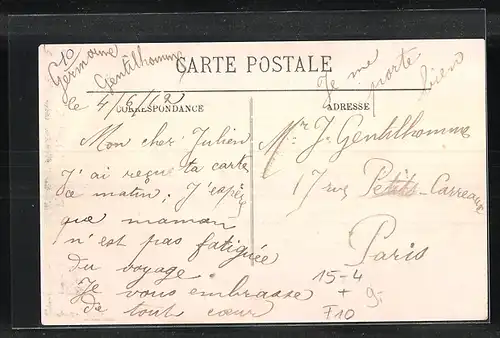 10
Germaine
Gentilhomme
CARTE POSTALE
Je me
porte
bien
le 4/6/12
CORRESPONDANCE
ADRESSE
Mon cher Julien
J'ai reçue ta carte
ce matin; J'espère
que maman
n'est pas fatiguée
du voyage
Je vous embrasse
de tout cœur
Mr J. Gentilhomme
17 rue Petits-Carreaux
Paris
15-4
+ 9-
F10